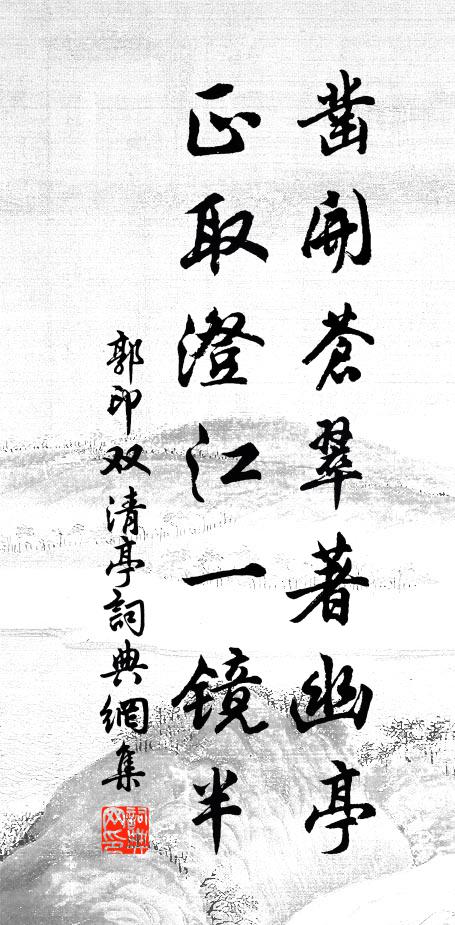 凿開蒼翠著幽亭
正取澄江一镜半
郭印双清亭詞典網集